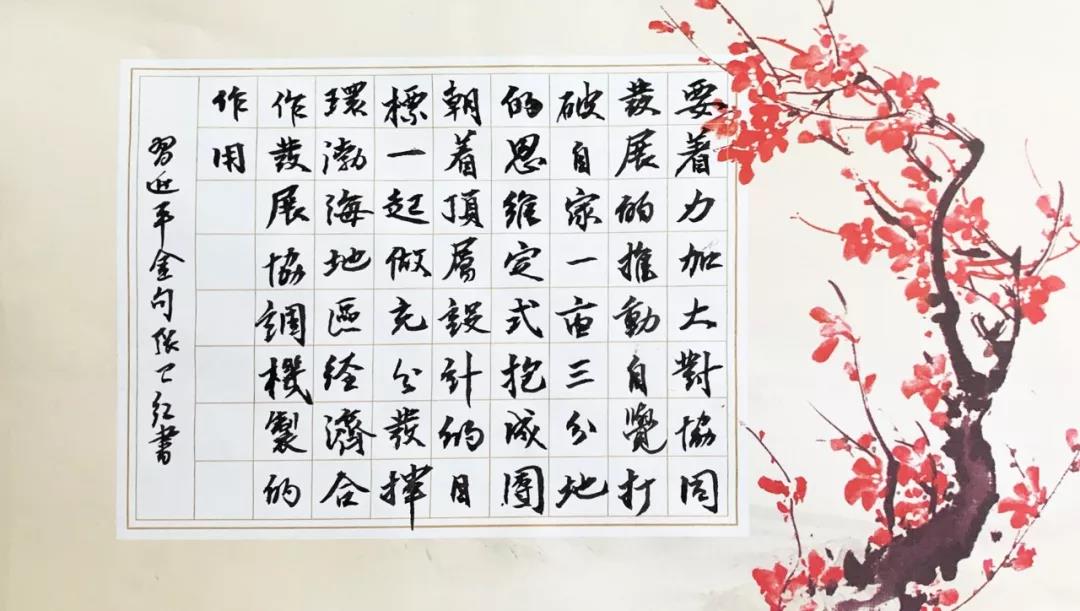 要着力加大對協同
發展的推動自覺打
破自家一亩三分地
的思維定式抱成團
朝着頂層設計的目
標一起做充分發揮
環渤海地區经濟合
作發展協調機製的
作用
習近平金句張卫红書